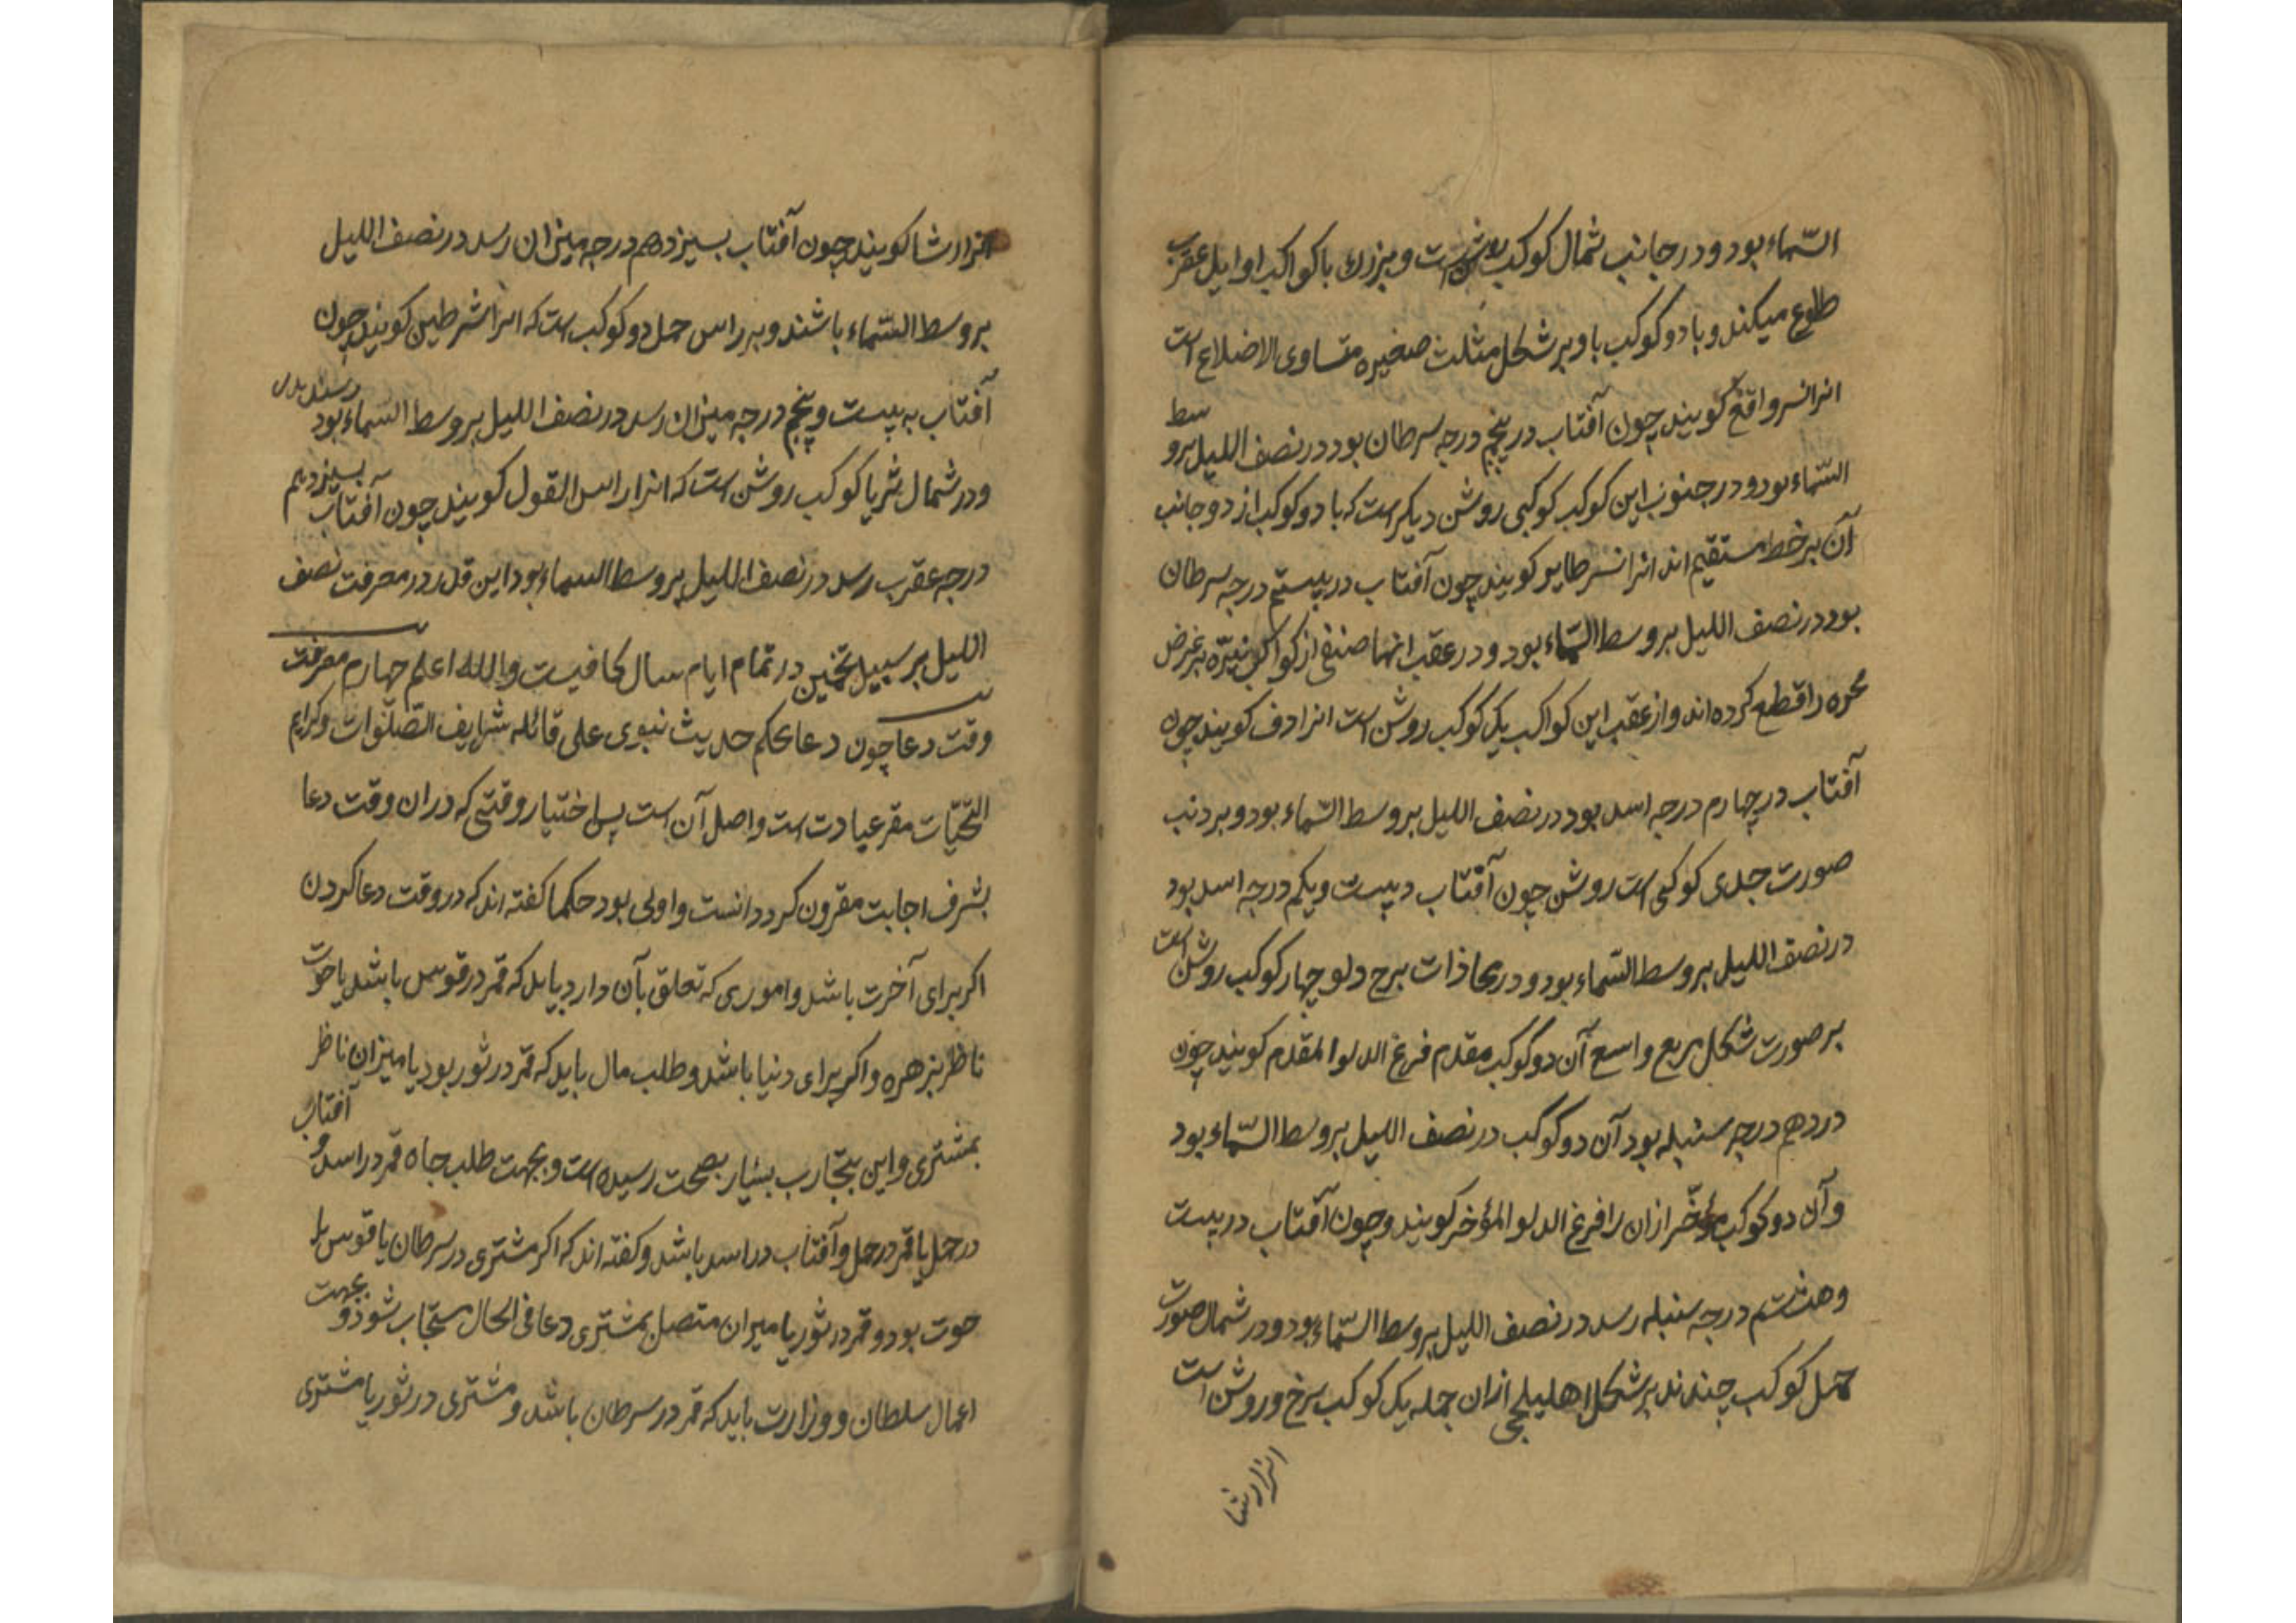 السّماء بود و در جانب شمال کوکب روشنست و بزرک با کواکب اوایل عقرب
طلوع میکند و با دو کوکب با و بر شکل مثلث صغیره متساوی الاضلاع است
انرا نسر واقع کویند چون آفتاب در پنجم درجه سرطان بود در نصف اللیل بر وسط
السّماء بود و در جنوب این کوکب کوکبی روشن دیکر است که با دو کوکب از دو جانب
آن بر خط مستقیم اند انرا نسر طایر کویند چون آفتاب در بیستم درجه سرطان
بود در نصف اللیل بر وسط السّماء بود و در عقب انها صنفی از کواکب نیّره بر عرض
مجره را قطع کرده اند و از عقب این کواکب یک کوکب روشن است انرا دف کویند چون
آفتاب در چهارم درجه اسد بود در نصف اللیل بر وسط السّماء بود و بر دنب
صورت جدی کوکبی است روشن چون آفتاب دبیست و یکم درجه اسد بود
در نصف اللیل بر وسط السّماء بود و در محاذات برج دلو چهار کوکب روشن است
بر صورت شکل مربع واسع آن دو کوکب مقدم فرغ الدلو المقدم کویند چون
در دهم درجه سنبله بود آن دو کوکب در نصف اللیل بر وسط السّماء بود
و آن دو کوکب مؤخّر ازان را فرغ الدلو المؤخر کویند و چون آفتاب در بیست
و هشتم درجه سنبله رسد در نصف اللیل بر وسط السّماء بود و در شمال صورت
حمل کوکب چندند بر شکل اهلیلجی ازان جمله یک کوکب سرخ و روشن است
انرا رشا
انرا رشا کویند چون آفتاب بسیزدهم درجه میزان رسد در نصف اللیل
بر وسط السّماء باشند و بر راس حمل دو کوکب است که انرا شرطین کویند چون
آفتاب به بیست و پنجم درجه میزان رسد در نصف اللیل بر وسط السماء بود
و در شمال ثریا کوکب روشن است که انرا راس الغول کویند چون آفتاب بسیزدهم
درجه عقرب رسد در نصف اللیل بر وسط السماء بود این قدر در معرفت نصف
اللیل بر سبیل تخمین در تمام ایام سال کافیست والله اعلم چهارم معرفت
وقت دعا چون دعا بحکم حدیث نبوی علی قائله شرایف الصّلوات و کرایم
التّحیّات مقر عبادت است و اصل آن است پس اختیار وقتی که دران وقت دعا
بشرف اجابت مقرون کردد انست و اولی بود حکما کفته اند که در وقت دعا کردن
اکر برای آخرت باشد و اموری که تعلق بآن دارد بیابد که قمر در قوس باشد یا حوت
ناظر بزهره و اکر برای دنیا باشد و طلب مال باید که قمر در ثور بود یا میزان ناظر
بمشتری و این بتجارب بسیار بصحت رسیده است و بجهت طلب جاه قمر در اسد و آفتاب
در حمل یا قمر در حمل و آفتاب در اسد باشد و کفته اند که اکر مشتری در سرطان یا قوس یا
حوت بود و قمر در ثور یا میزان متصل بمشتری دعا فی الحال مستجاب شود و بجهت
اعمال سلطان و وزارت باید که قمر در سرطان باشد و مشتری در ثور یا مشتری